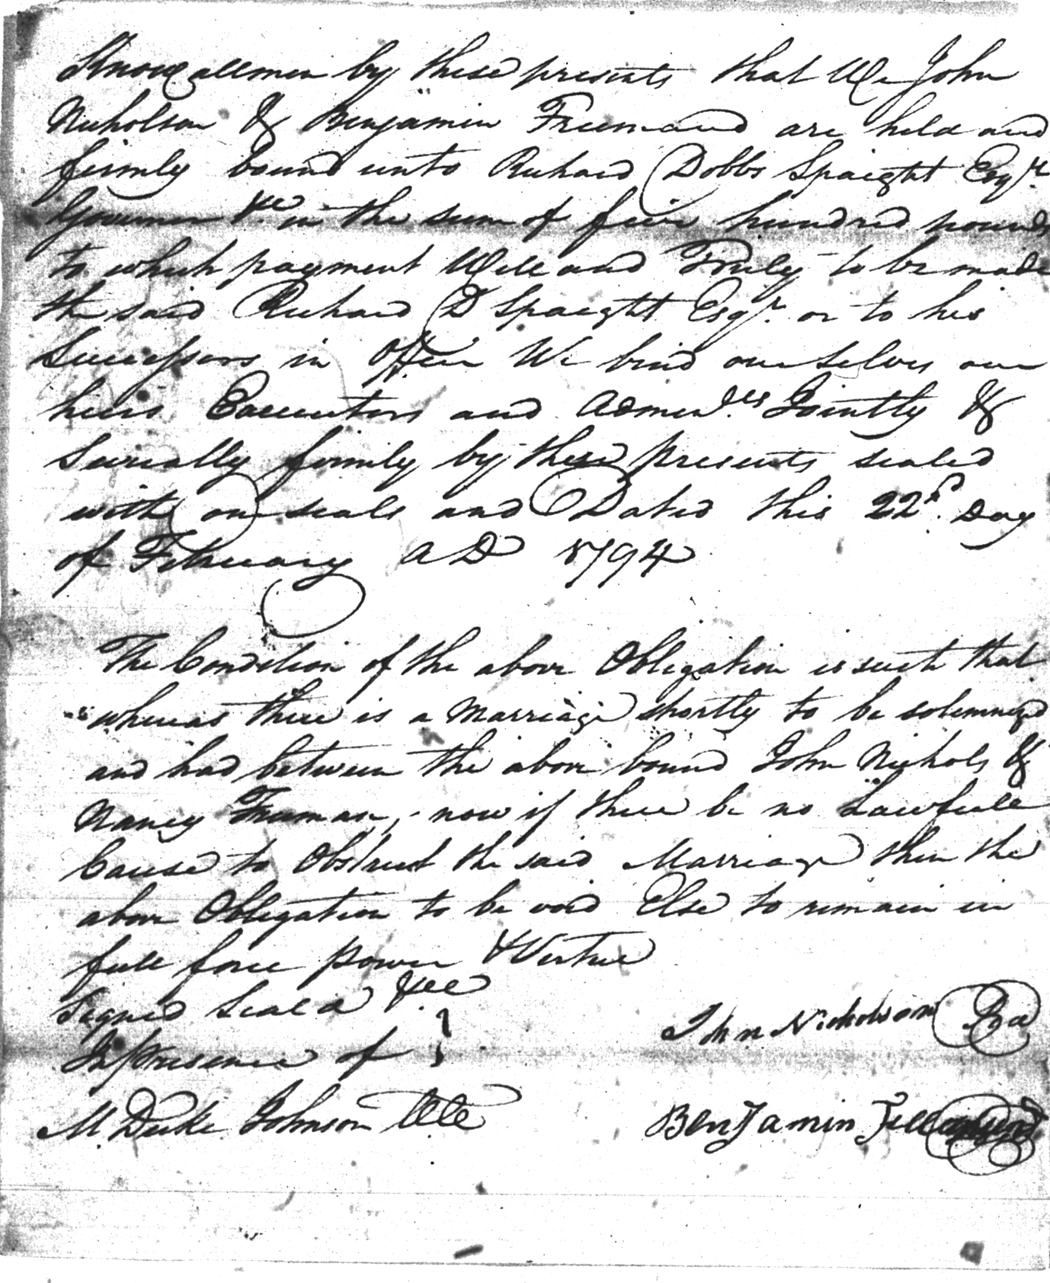 Know all men by these presents that We John
Nicholson & Benjamin Freemand are held and
firmly bound unto Richard Dobbs Spaight Esqr.
Governor &c in the sum of five hundred pounds
to which payment Well and Truly to be made
the said Richard D Spaight Esqr. or to his
Successors in Office We bind ourselves our
heirs Executors and Admenrs Jointly &
Severally firmly by these presents sealed
with our seals and Dated this 22d. Day
of February AD 1794
The Condition of the above Obligation is such that
whereas there is a Marriage shortly to be solemnized
and had between the above bound John Nichols &
Nancy Truman, now if there be no Lawfull
Cause to Obstruct the said Marriage then the
above Obligation to be void Else to remain in
full force power & Virtue
Signed Seald &cc
In presence of
John Nicholson
M. Duke Johnson
Benjamin